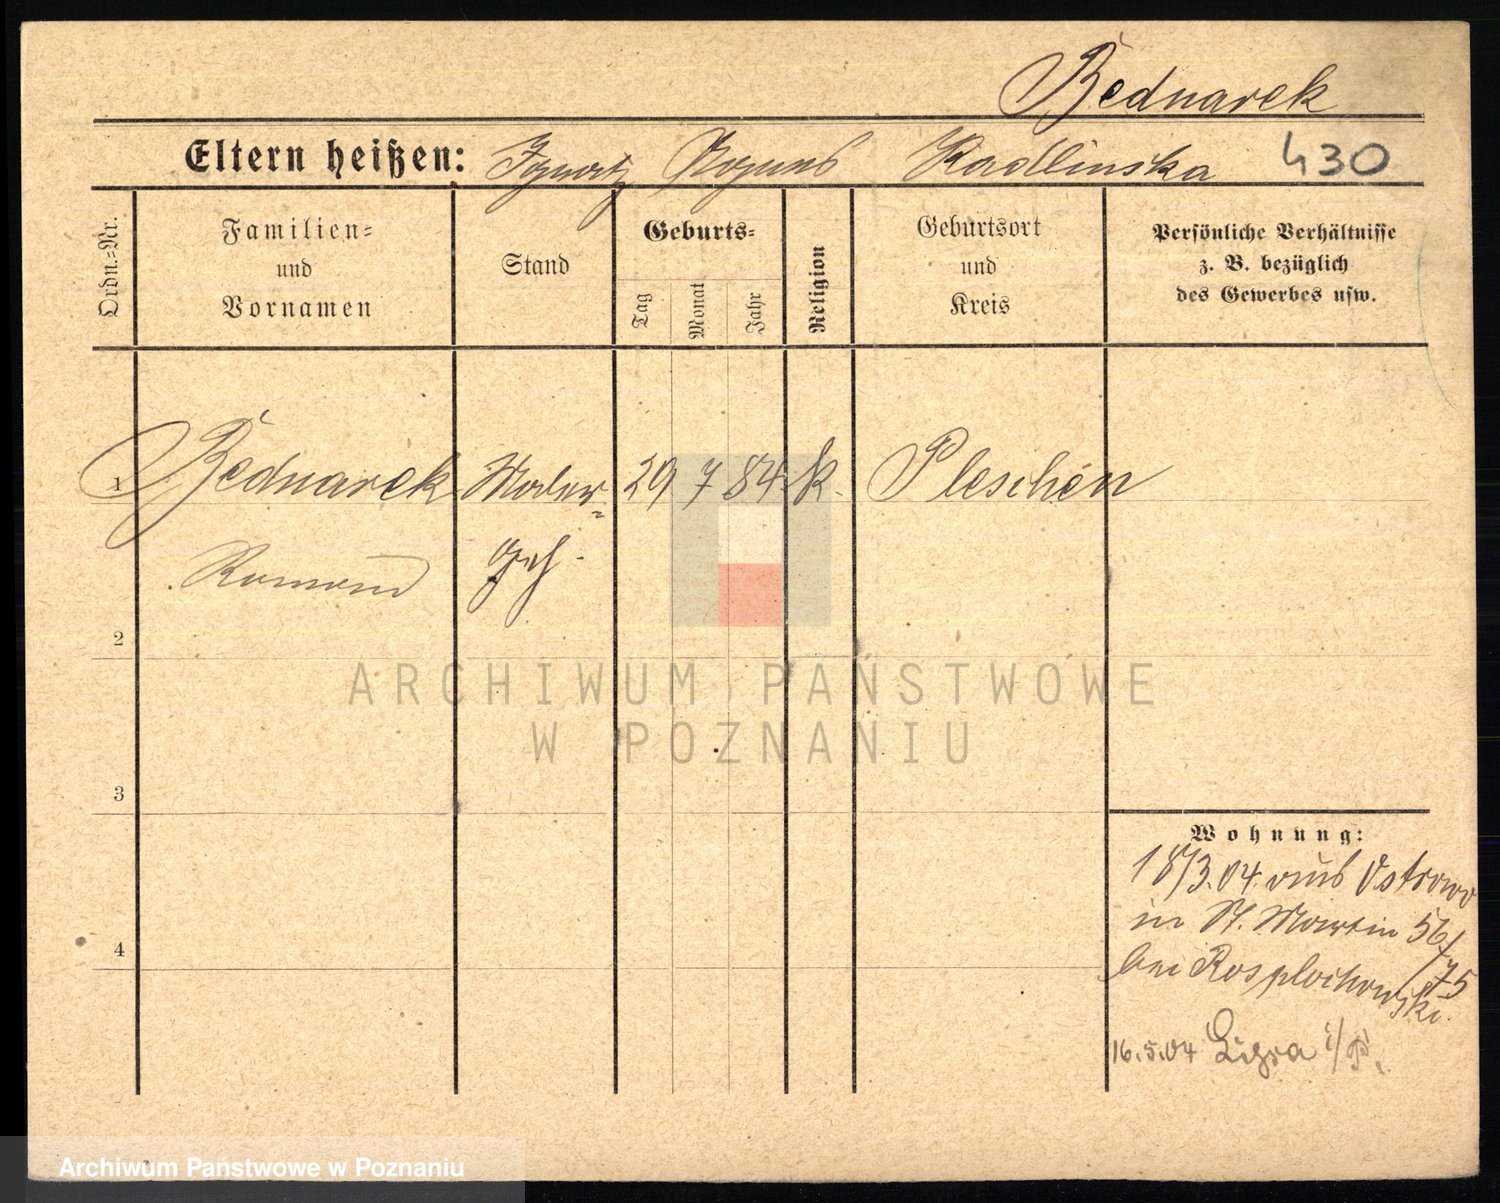 Bednarek
Eltern heißen: Ignatz Agnes Kadlinska 430
Ordn.-Nr.
Familien- und Vornamen
Stand
Geburts-
Tag Monat Jahr
Religion
Geburtsort und Kreis
Persönliche Verhältnisse
z. B. bezüglich
des Gewerbes usw.
1 Bednarek Maler- 29 7 84. k. Pleschen
Roman geh.
2
3
4
Wohnung:
18/3.04. aus Ostrowo
in St. Martin 56/75
bei Rosplochowski.
16.5.04
ARCHIWUM PAŃSTWOWE
W POZNANIU
Archiwum Państwowe w Poznaniu